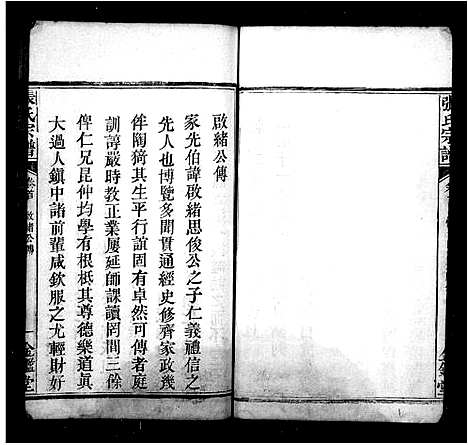 張氏宗譜
啟緒公傳
家先伯諱啟緒思俊公之子仁義禮信之
先人也博覽多聞貫通經史修齊家政幾
侔陶猗其生平行誼固有卓然可傳者庭
訓諄嚴時教正業屢延師課讀罔間三餘
俾仁兄昆仲均學有根柢其尊德樂道眞
大過人鎮中諸前輩咸欽服之尤輕財好
張氏宗譜
卷首
啟緒公傳
一
金鑑堂